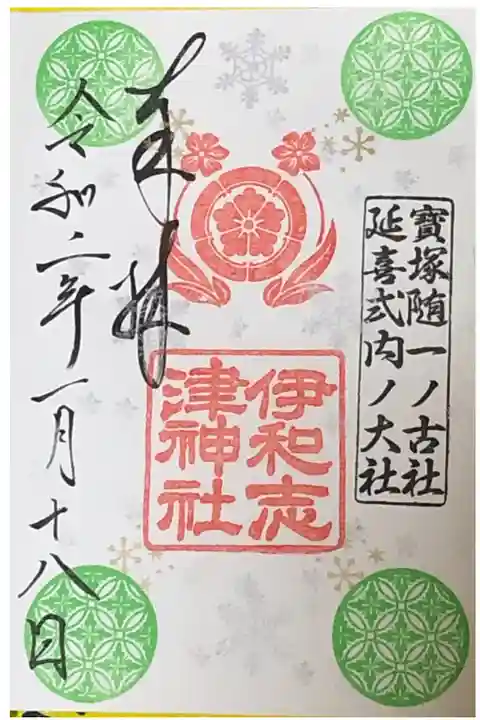 寶塚随一ノ古社
延喜式内ノ大社
奉拝
伊和志
津神社
令和二年一月十八日